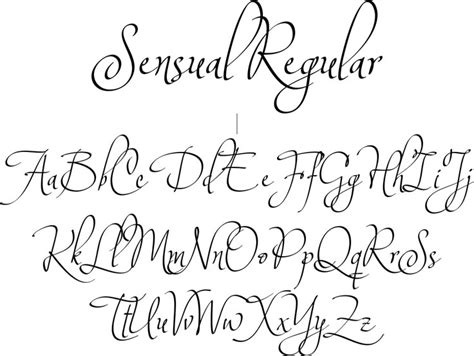 Sensual Regular
Aa Bb Cc Dd Ee Ff Gg Hh Ii Jj
Kk Ll Mm Nn Oo Pp Qq Rr Ss
Tt Uu Vv Ww Xx Yy Zz